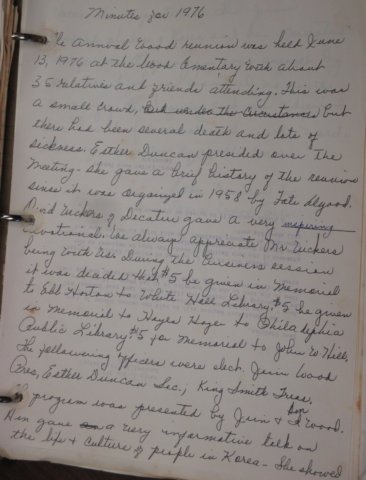 Minutes for 1976
The Annual Wood reunion was held June
13, 1976 at the Wood Cementary with about
35 relatives and friends attending. This was
a small crowd, but under the Circustances but
there had been several death and lots of
sickness. Esther Duncan presided over the
Meeting - she gave a brief history of the reunion
since it was organized in 1958 by Fate Algood.
Vickers of Decatur gave a very inspiring
devotional. We always appreciate Mr. Vickers
being with us. During the business session
it was decided that $5 be given in Memorial
to Ebb Horton to White Hall Library, $5 be given
in Memorial to Hayes to Philadelphia
Public Library $5 for Memorial to John W. Hill.
The following officers were elect. Jim Wood
Pres, Esther Duncan Sec.; King Smith Treas.
The program was presented by Jim & Wood.
gave a very informative talk on
the life & culture of people in Korea - She showed